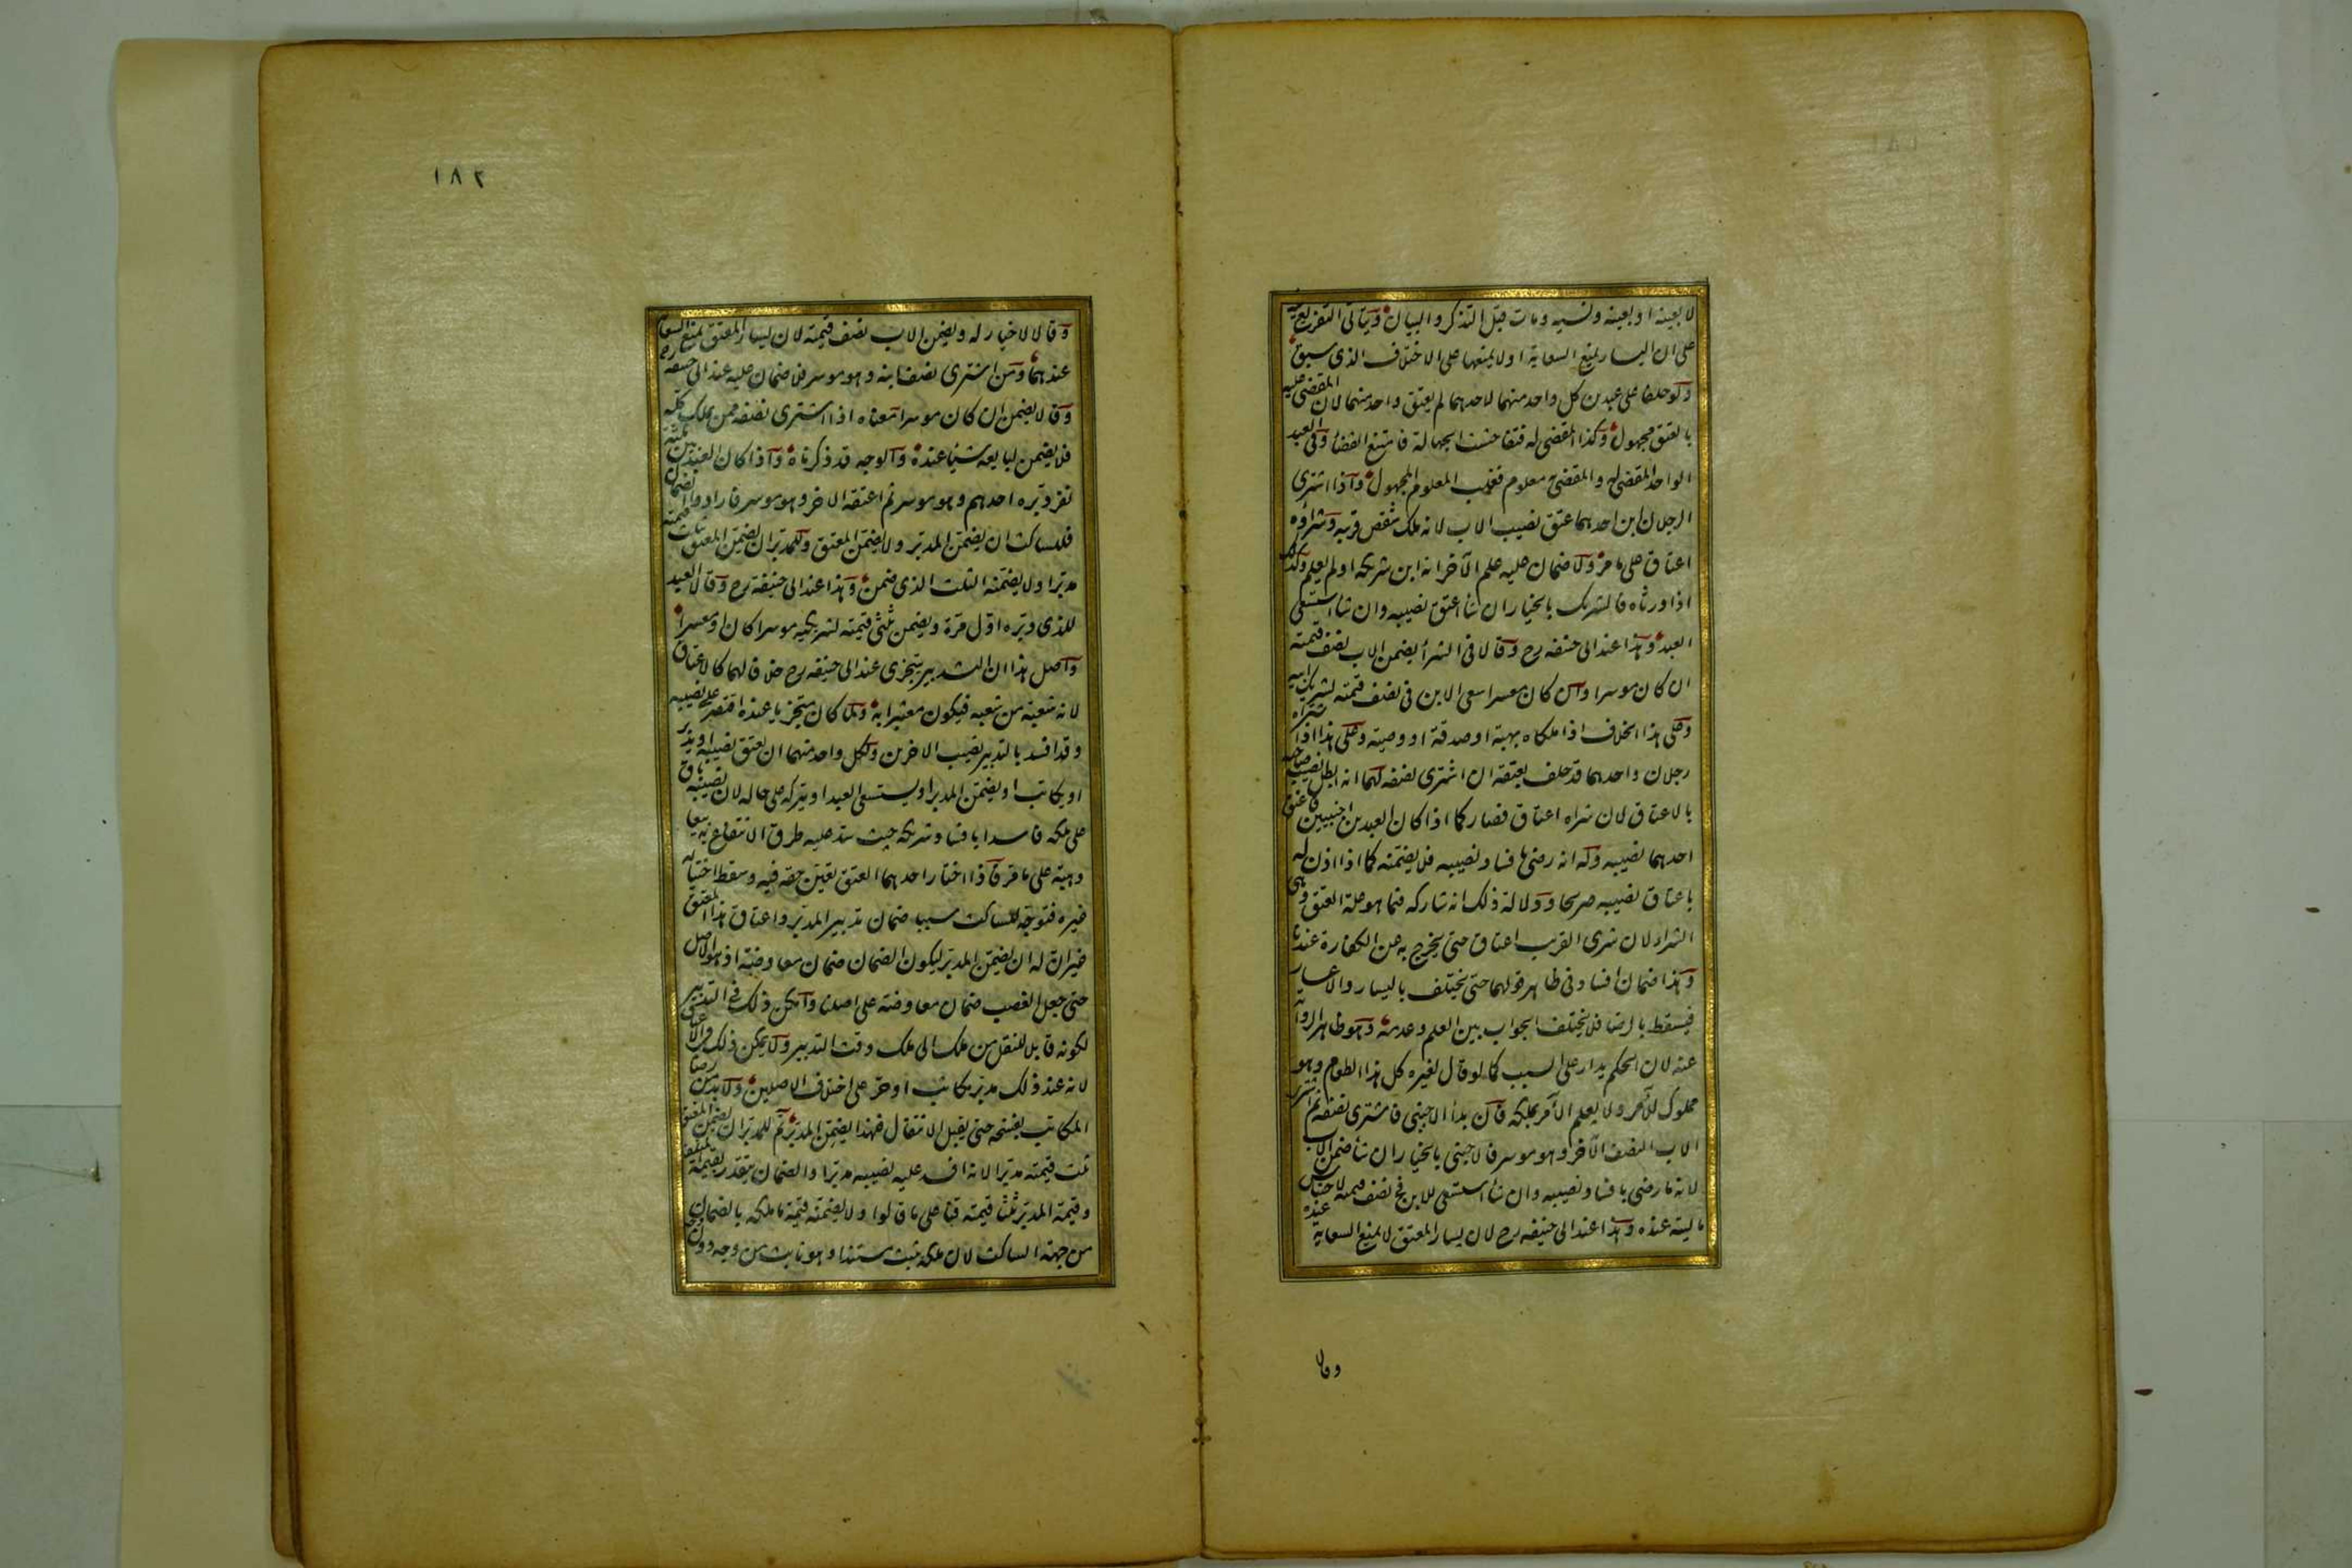 لا بعينه او بعينه ونسيه ومات قبل التذكر والبيان ويتأتى التفريع فيه
على ان اليسار يمنع السعاية او لا يمنعها على الاختلاف الذى سبق
ولو حلفا على عبدين كل واحد منهما لاحدهما لم يعتق واحد منهما لان المقضى عليه
بالعتق مجهول وكذا المقضى له فتفاحشت الجهالة فامتنع القضاء وفى العبد
الواحد المقضى له والمقضى معلوم فغلب المعلوم المجهول واذا اشترى
الرجلان ابن احدهما عتق نصيب الاب لانه ملك شقص قريبه وشراؤه
اعتاق على ما مر ولا ضمان عليه علم الآخر انه ابن شريكه او لم يعلم وكذلك
اذا ورثاه فالشريك بالخيار ان شا اعتق نصيبه وان شا استسعى
العبد وهذا عند ابى حنيفه رح وقالا فى الشرا يضمن الاب نصف قيمته
ان كان موسرا وان كان معسرا سعى الابن فى نصف قيمته لشريك ابيه
وعلى هذا الخلاف اذا ملكاه بهبة او صدقة او وصية وعلى هذا اذا شراه
رجلان واحدهما قد حلف بعتقه ان اشترى نصفه لهما انه ابطل نصيب صاحبه
بالاعتاق لان شراه اعتاق فصار كما اذا كان العبد بين اجنبيين فاعتق
احدهما نصيبه وله انه رضى بافساد نصيبه فلا يضمنه كما اذا اذن له
باعتاق نصيبه صريحا ودلالة ذلك انه شاركه فيما هو علة العتق وهى
الشراء لان شرى القريب اعتاق حتى يخرج به عن الكفارة عندنا
وهذا ضمان افساد فى ظاهر قولهما حتى يختلف باليسار والاعسار
فيسقط بالرضا فلا يختلف الجواب بين العلم وعدمه وهو ظاهر الرواية
عنه لان الحكم يدار على السبب كما لو قال لغيره كل هذا الطعام وهو
مملوك للآمر ولا يعلم الآمر بملكه فان بدأ الاجنبى فاشترى نصفه ثم اشترى
الاب النصف الآخر وهو موسر فالاجنبى بالخيار ان شا ضمن الاب
لانه ما رضى بافساد نصيبه وان شا استسعى الابن فى نصف قيمته لاحتباس
ماليته عنده وهذا عند ابى حنيفه رح لان يسار المعتق لا يمنع السعاية عنده
وقالا
١٨٢
وقالا لا خيار له ويضمن الاب نصف قيمته لان يسار المعتق يمنع السعاية
عندهما ومن اشترى نصف ابنه وهو موسر فلا ضمان عليه عند ابى حنيفه رح
وقالا يضمن ان كان موسرا معناه اذا اشترى نصفه ممن يملك كله
فلا يضمن لبايعه شيأ عنده والوجه قد ذكرناه واذا كان العبد بين ثلثة
نفر دبره احدهم وهو موسر ثم اعتقه الاخر وهو موسر فارادوا الضمان
فللساكت ان يضمن المدبر ولا يضمن المعتق وللمدبر ان يضمن المعتق ثلث قيمته
مدبرا ولا يضمنه الثلث الذى ضمن وهذا عند ابى حنيفة رح وقالا العبد
للذى دبره اول مرة ويضمن ثلثى قيمته لشريكيه موسرا كان او معسرا
واصل هذا ان التدبير يتجزى عند ابى حنيفه رح خلافا لهما كالاعتاق
لانه شعبة من شعبه فيكون معتبرا به ولما كان متجزيا عنده اقتصر على نصيبه
وقد افسد بالتدبير نصيب الاخرين ولكل واحد منهما ان يعتق نصيبه او يدبر
او يكاتب او يضمن المدبر او يستسعى العبد او يتركه على حاله لان نصيبه باق
على ملكه فاسدا بافساد شريكه حيث سد عليه طرق الانتفاع به بيعا
وهبة على ما مر فاذا اختار احدهما العتق تعين حقه فيه وسقط اختياره
غيره فتوجه للساكت سببا ضمان تدبير المدبر واعتاق هذا المعتق
غير ان له ان يضمن المدبر ليكون الضمان ضمان معاوضة اذ هو الاصل
حتى جعل الغصب ضمان معاوضة على اصلنا وامكن ذلك فى التدبير
لكونه قابلا للنقل من ملك الى ملك وقت التدبير ولا يمكن ذلك فى الاعتاق
لانه عند ذلك مدبر مكاتب او حر على اختلاف الاصلين ولا بد من رضا
المكاتب بفسخه حتى يقبل الانتقال فلهذا يضمن المدبر ثم للمدبر ان يضمن المعتق
ثلث قيمته مدبرا لانه افسد عليه نصيبه مدبرا والضمان يتقدر بقيمة المتلف
وقيمة المدبر ثلثا قيمته قنا على ما قالوا ولا يضمنه قيمة ما ملكه بالضمان
من جهة الساكت لان ملكه يثبت مستندا وهو ثابت من وجه دون